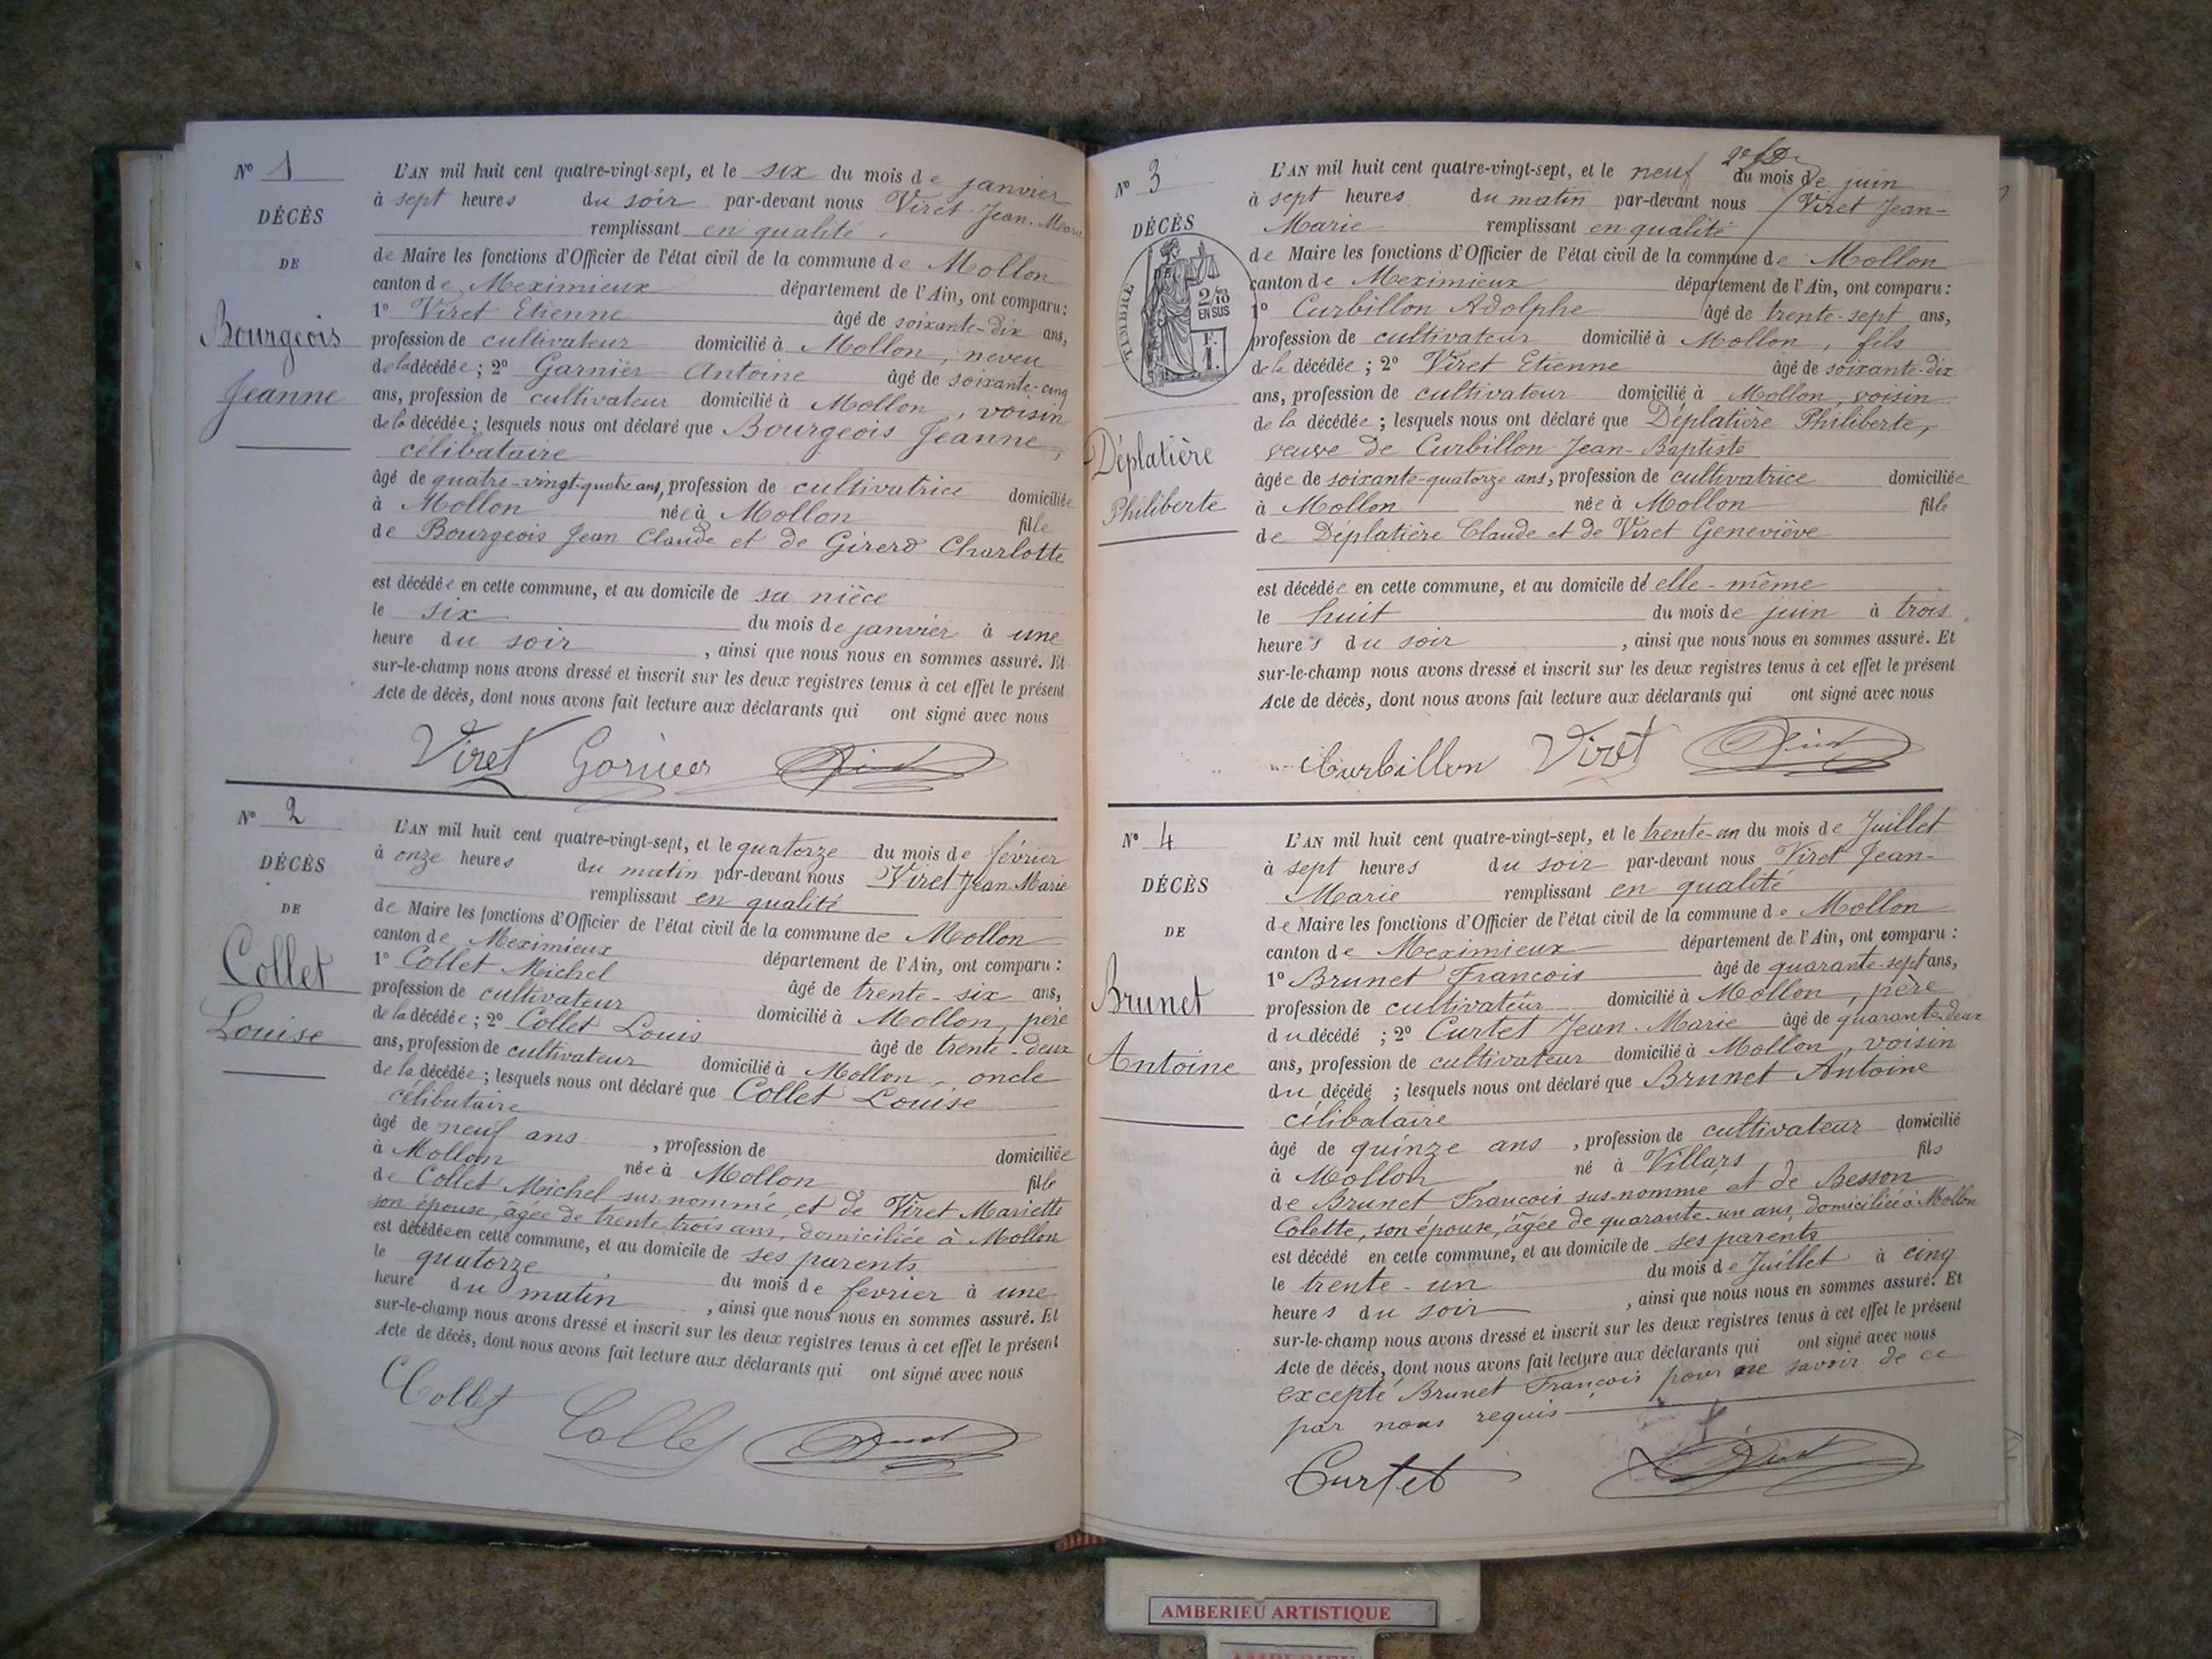 N° 1
DÉCÈS
DE
Bourgeois
Jeanne
L'AN mil huit cent quatre-vingt-sept, et le six du mois de janvier
à sept heures du soir par-devant nous Viret Jean-Marie
remplissant en qualité
de Maire les fonctions d'Officier de l'état civil de la commune de Mollon
canton de Meximieux département de l'Ain, ont comparu :
1° Viret Etienne âgé de soixante-dix ans,
profession de cultivateur domicilié à Mollon, neveu
de la décédée ; 2° Garnier Antoine âgé de soixante-cinq
ans, profession de cultivateur domicilié à Mollon, voisin
de la décédée ; lesquels nous ont déclaré que Bourgeois Jeanne,
célibataire
âgé de quatre-vingt-quatre ans, profession de cultivatrice domiciliée
à Mollon née à Mollon fille
de Bourgeois Jean Claude et de Girerd Charlotte
est décédée en cette commune, et au domicile de sa nièce
le six du mois de janvier à une
heure du soir , ainsi que nous nous en sommes assuré. Et
sur-le-champ nous avons dressé et inscrit sur les deux registres tenus à cet effet le présent
Acte de décès, dont nous avons fait lecture aux déclarants qui ont signé avec nous
Viret Garnier
N° 2
DÉCÈS
DE
Collet
Louise
L'AN mil huit cent quatre-vingt-sept, et le quatorze du mois de février
à onze heures du matin par-devant nous Viret Jean Marie
remplissant en qualité
de Maire les fonctions d'Officier de l'état civil de la commune de Mollon
canton de Meximieux département de l'Ain, ont comparu :
1° Collet Michel âgé de trente-six ans,
profession de cultivateur domicilié à Mollon, père
de la décédée ; 2° Collet Louis âgé de trente-deux
ans, profession de cultivateur domicilié à Mollon, oncle
de la décédée ; lesquels nous ont déclaré que Collet Louise
célibataire
âgé de neuf ans , profession de domiciliée
à Mollon née à Mollon fille
de Collet Michel sus-nommé, et de Viret Mariette
son épouse, âgée de trente-trois ans, domiciliée à Mollon
est décédée en cette commune, et au domicile de ses parents
le quatorze du mois de fevrier à une
heure du matin , ainsi que nous nous en sommes assuré. Et
sur-le-champ nous avons dressé et inscrit sur les deux registres tenus à cet effet le présent
Acte de décès, dont nous avons fait lecture aux déclarants qui ont signé avec nous
Collet Collet
N° 3
DÉCÈS
TIMBRE
2/10
EN SUS
F.
1.
Déplatière
Philiberte
L'AN mil huit cent quatre-vingt-sept, et le neuf du mois de juin
à sept heures du matin par-devant nous Viret Jean-
Marie remplissant en qualité
de Maire les fonctions d'Officier de l'état civil de la commune de Mollon
canton de Meximieux département de l'Ain, ont comparu :
1° Curbillon Adolphe âgé de trente-sept ans,
profession de cultivateur domicilié à Mollon, fils
de la décédée ; 2° Viret Etienne âgé de soixante-dix
ans, profession de cultivateur domicilié à Mollon, voisin
de la décédée ; lesquels nous ont déclaré que Déplatière Philiberte,
veuve de Curbillon Jean-Baptiste
âgée de soixante-quatorze ans, profession de cultivatrice domiciliée
à Mollon née à Mollon fille
de Déplatière Claude et de Viret Geneviève
est décédée en cette commune, et au domicile de elle-même
le huit du mois de juin à trois
heures du soir , ainsi que nous nous en sommes assuré. Et
sur-le-champ nous avons dressé et inscrit sur les deux registres tenus à cet effet le présent
Acte de décès, dont nous avons fait lecture aux déclarants qui ont signé avec nous
Curbillon Viret
N° 4
DÉCÈS
DE
Brunet
Antoine
L'AN mil huit cent quatre-vingt-sept, et le trente-un du mois de Juillet
à sept heures du soir par-devant nous Viret Jean-
Marie remplissant en qualité
de Maire les fonctions d'Officier de l'état civil de la commune de Mollon
canton de Meximieux département de l'Ain, ont comparu :
1° Brunet Francois âgé de quarante-sept ans,
profession de cultivateur domicilié à Mollon, père
du décédé ; 2° Curtet Jean-Marie âgé de quarante-deux
ans, profession de cultivateur domicilié à Mollon, voisin
du décédé ; lesquels nous ont déclaré que Brunet Antoine
célibataire
âgé de quinze ans , profession de cultivateur domicilié
à Mollon né à Villars fils
de Brunet Francois sus-nommé et de Besson
Colette, son épouse, âgée de quarante-un ans, domiciliée à Mollon
est décédé en cette commune, et au domicile de ses parents
le trente-un du mois de Juillet à cinq
heures du soir , ainsi que nous nous en sommes assuré. Et
sur-le-champ nous avons dressé et inscrit sur les deux registres tenus à cet effet le présent
Acte de décès, dont nous avons fait lecture aux déclarants qui ont signé avec nous
excepté Brunet François pour ne savoir de ce
par nous requis
Curtet
AMBERIEU ARTISTIQUE